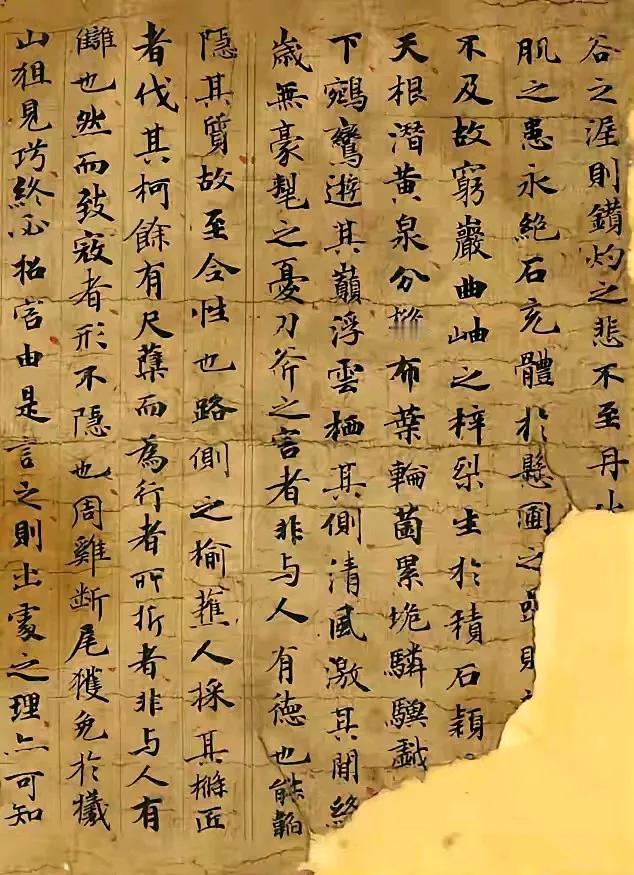 谷之涯則鑽灼之悲不至丹
肌之患永絕石亮體於懸圃之巖則
不及故窮巖曲岫之梓梨生於積石穎
天根潛黃泉分布葉輪菌累垝驎驥戲
下鵷鸞遊其巔浮雲栖其側清風激其間終
歲無豪氂之憂刃斧之害者非与人有德也能韜
隱其質故至全性也路側之榆蕉人採其樤匠
者伐其柯餘有尺蘖而為行者所折者非与人有
讎也然而致寇者形不隱也周雞断尾獲免於犧
山狙見巧終必招害由是言之則出處之理亦可知